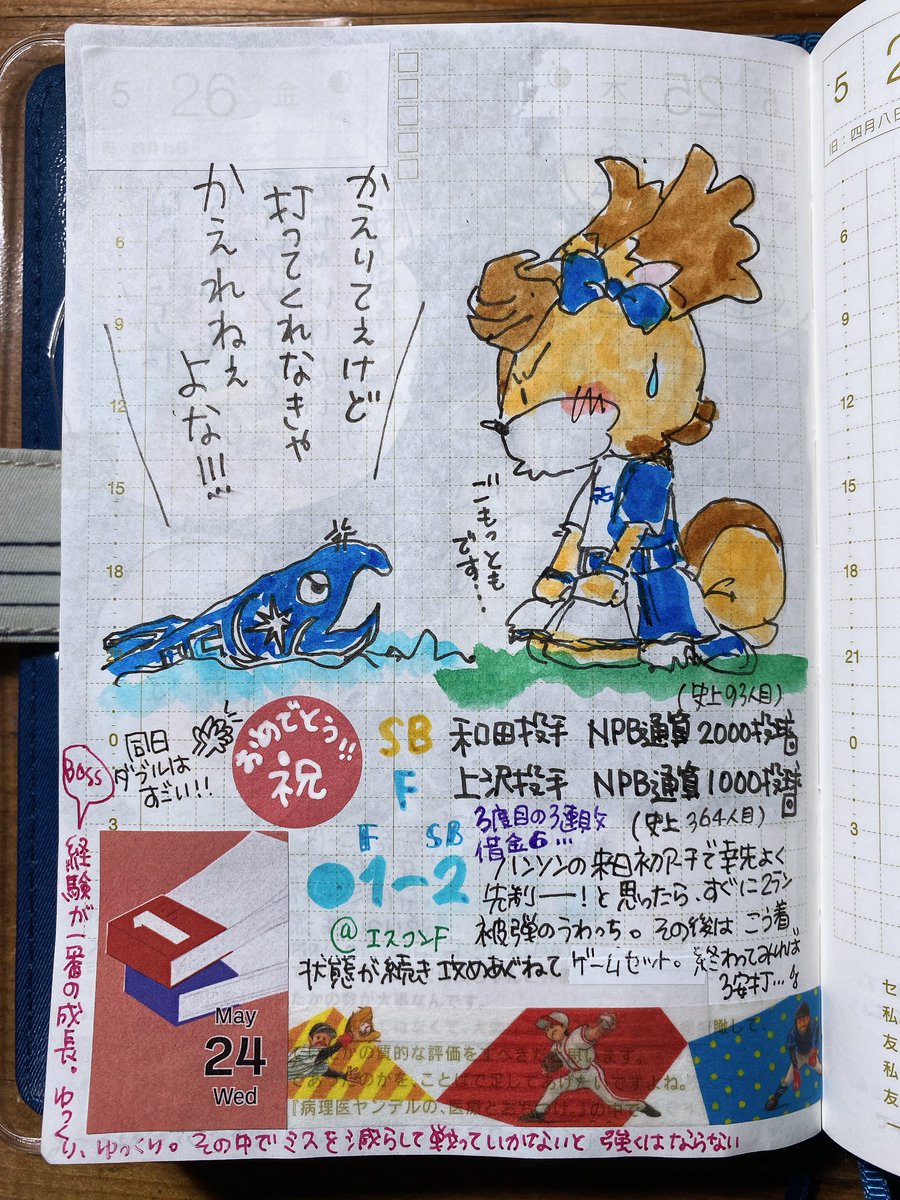 5 26 金
かえりてぇけど
打ってくれなきゃ
かえれねぇ
よな!!!
ごもっとも
です…
6
9
12
15
18
0
3
同日
ダブルは
すごい!!
おめでとう!!
祝
(史上93人目)
SB 和田投手 NPB通算2000投球回
F 上沢投手 NPB通算1000投球回
(史上364人目)
3度目の3連敗
借金6…
F SB
●1-2
@エスコンF
ハンソンの来日初アーチで幸先よく
先制ー!と思ったら、すぐに2ラン
被弾のうわっち。その後はこう着
状態が続き攻めあぐねてゲームセット。終わってみれば
3安打…
1
May
24
Wed
Boss
経験が一番の成長。ゆっくり、ゆっくり。その中でミスを減らして戦っていかないと強くはならない
たかの数が大事なんです。
『病理医ヤンデルの、医療とお
5 2
旧:四月八日
6
9
12
15
18
21
0
3
セ
私
友
私
友